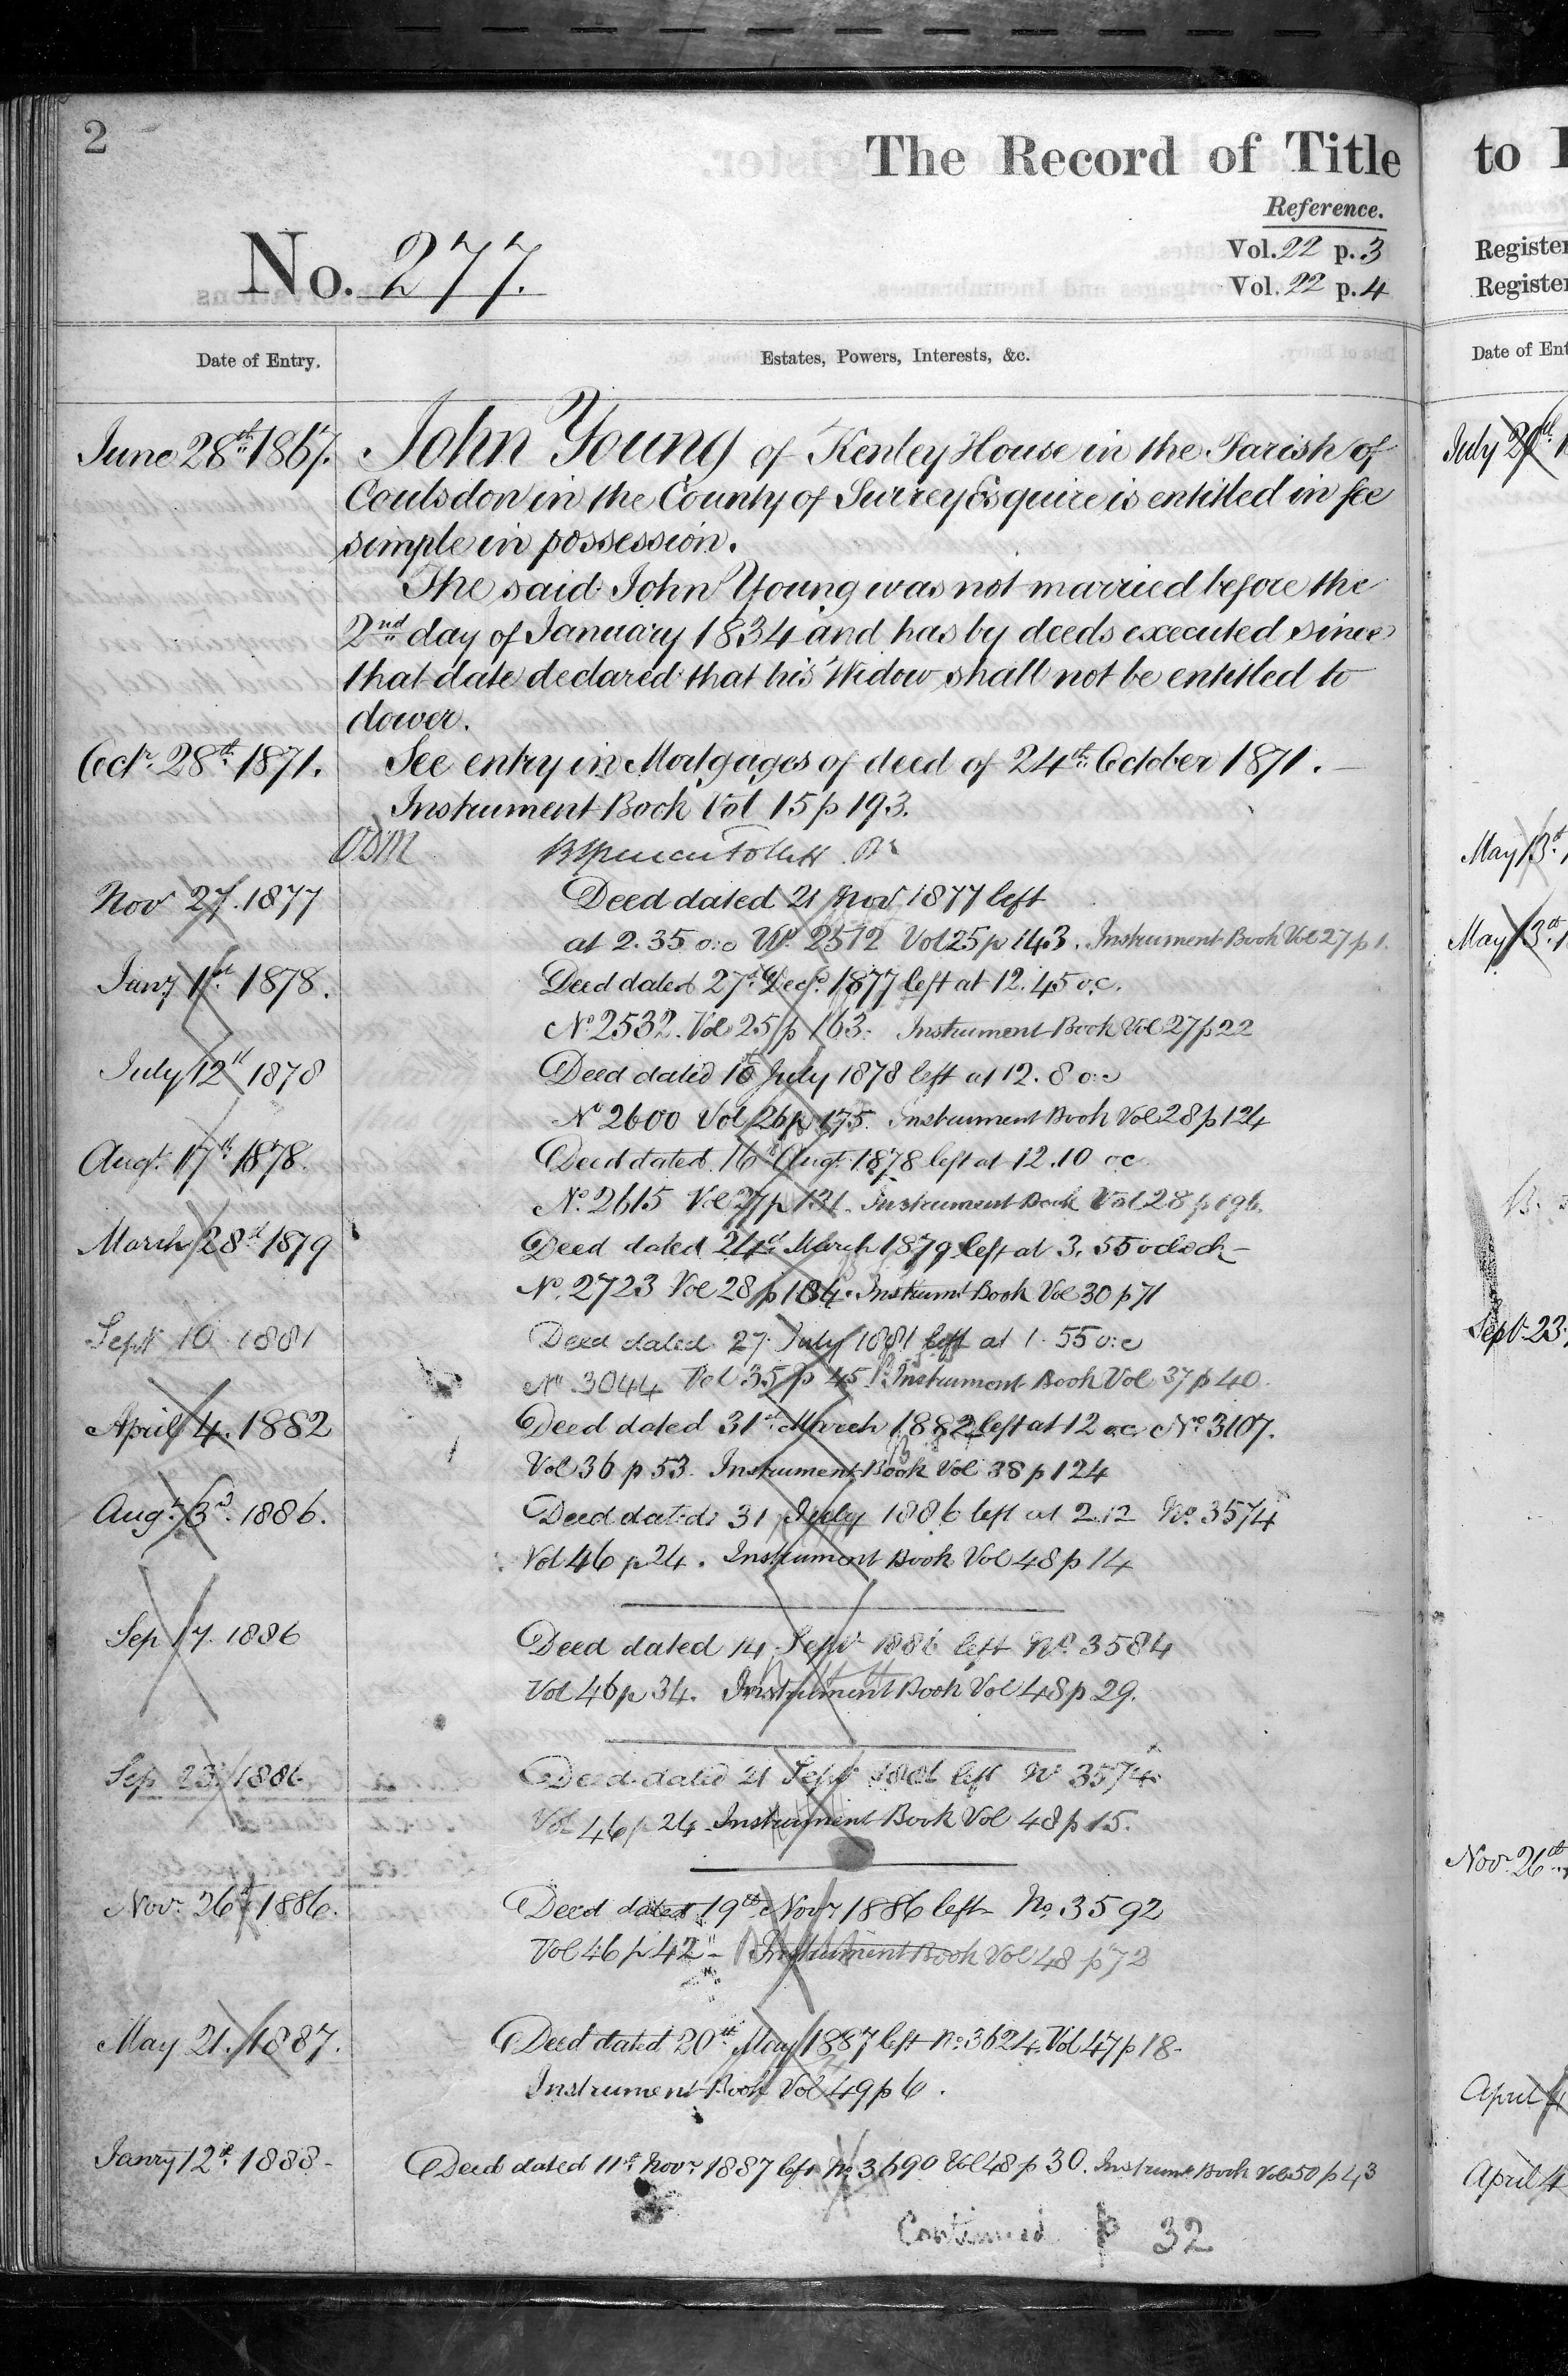 2
The Record of Title
Reference.
No. 277.
Vol. 22 p. 3
Vol. 22 p. 4
Date of Entry.
Estates, Powers, Interests, &c.
June 28th 1867. John Young of Kenley House in the Parish of
Coulsdon in the County of Surrey Esquire is entitled in fee
simple in possession.
The said John Young was not married before the
2nd day of January 1834 and has by deeds executed since
that date declared that his Widow shall not be entitled to
dower.
Octr. 28th 1871. See entry in Mortgages of deed of 24th October 1871.
Instrument Book Vol 15 p 193.
Nov 27. 1877 Deed dated 21 Nov 1877 left
at 2.35 o:c No. 2512 Vol 25 p 143. Instrument Book Vol 27 p 1.
Jany 1st 1878. Deed dated 27th Decr. 1877 left at 12.45 o.c.
No 2532. Vol 25 p 163. Instrument Book Vol 27 p 22
July 12th 1878 Deed dated 10th July 1878 left at 12.8 o:c
No 2600 Vol 26 p 175. Instrument Book Vol 28 p 124
Augt. 17th 1878. Deed dated 16th Augt. 1878 left at 12.10 oc
No. 2615 Vol 27 p 131. Instrument Book Vol 28 p 196.
March 28th 1879 Deed dated 24th March 1879 left at 3.55 oclock
No. 2723 Vol 28 p 184. Instrumt Book Vol 30 p 71
Sept 10 1881 Deed dated 27 July 1881 left at 1.55 o:c
No 3044 Vol 35 p 45 Instrument Book Vol 37 p 40.
April 4. 1882 Deed dated 31st March 1882 left at 12 o.c. No 3107.
Vol 36 p 53. Instrument Book Vol 38 p 124
Augt. 3rd. 1886. Deed dated 31 July 1886 left at 2.12 No. 3574
Vol 46 p 24. Instrument Book Vol 48 p 14
Sep 17. 1886 Deed dated 14 Sept 1886 left No. 3584
Vol 46 p 34. Instrument Book Vol 48 p 29.
Sep 23. 1886 Deed dated 21 Sept 1886 left No 3574
Vol 46 p 24 Instrument Book Vol 48 p 15.
Nov. 26th 1886. Deed dated 19th Novr. 1886 left No. 3592
Vol 46 p 42 Instrument Book Vol 48 p 72
May 21. 1887. Deed dated 20th May 1887 left No. 3624. Vol 47 p 18.
Instrument Book Vol 49 p 6.
Janry 12th 1888 Deed dated 11th Novr. 1887 left No. 3690 Vol 48 p 30. Instrumt Book Vol 50 p 43
Continued p 32
to
Register
Register
Date of Ent
July
May 13th
May 13th
Sept 23
Nov. 26th
April 4
April 4